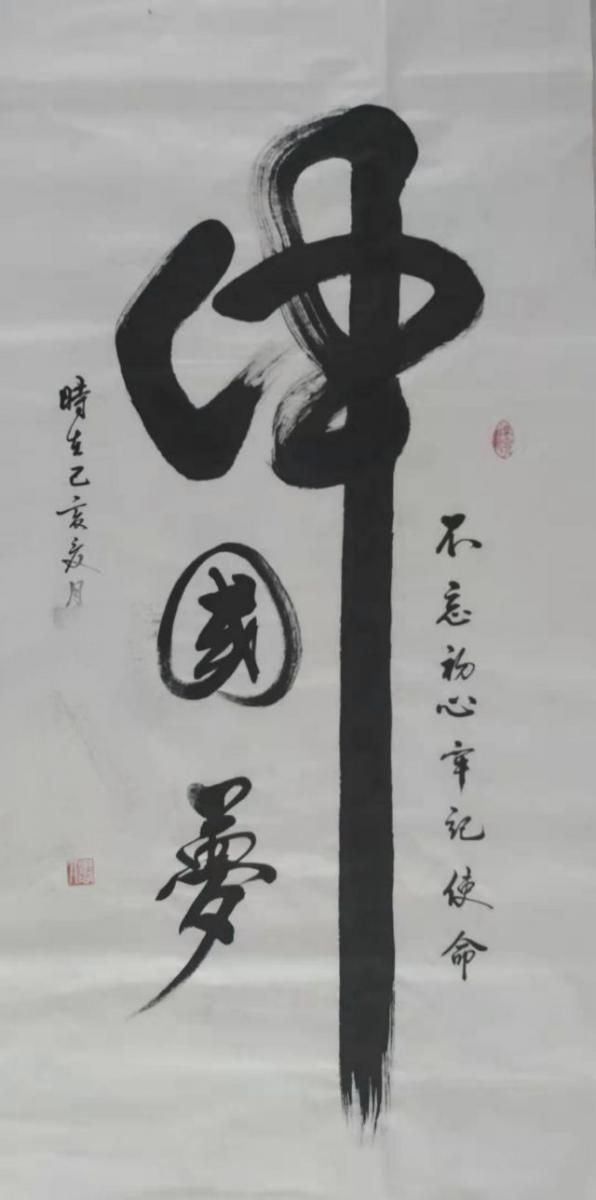 不忘初心牢記使命
中國夢
時在己亥夏月